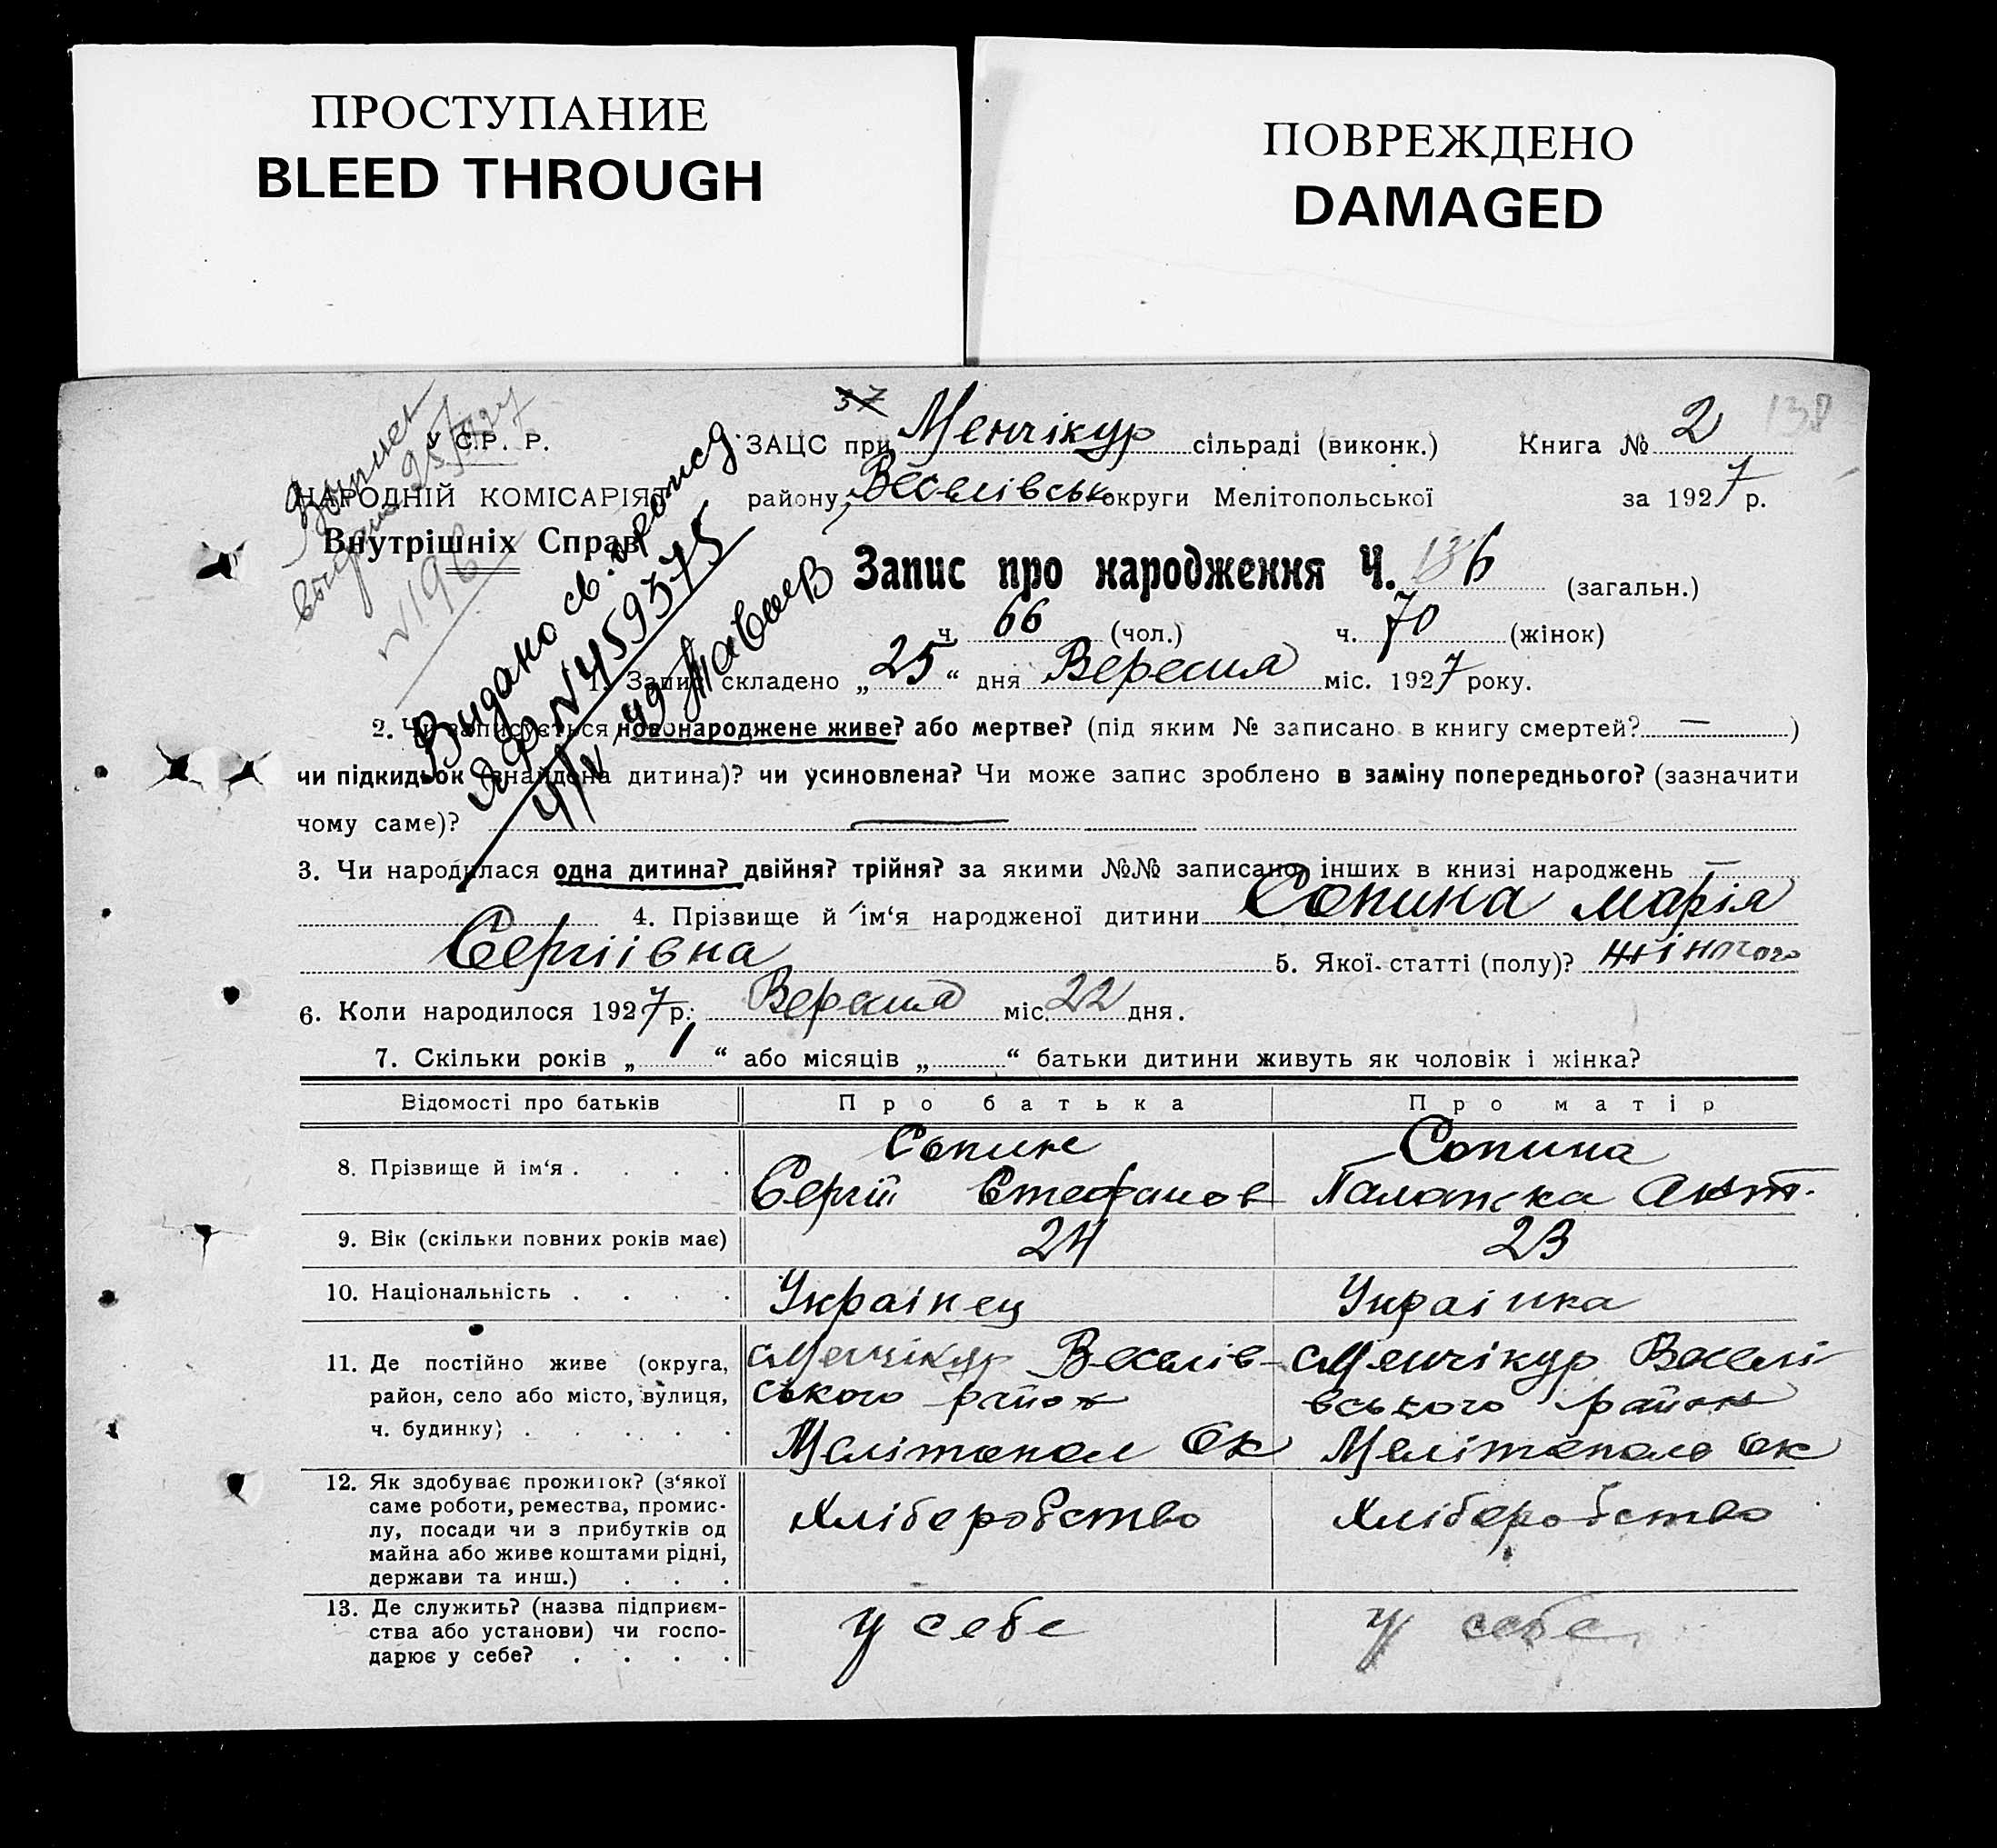 ПРОСТУПАНИЕ
BLEED THROUGH
ПОВРЕЖДЕНО
DAMAGED
37
У С.Р. Р.
ЗАЦС при Менчікур сільраді (виконк.) Книга № 2 138
НАРОДНІЙ КОМІСАРІЯТ
району Веселівськ округи Мелітопольської за 1927 р.
Внутрішніх Справ
Запис про народження Ч. 136 (загальн.)
ч. 66 (чол.) ч. 70 (жінок)
N 196
Видано св.
ЯФ N 459375
1. Запис складено „25“ дня Вересня міс. 1927 року.
2. Чи записується новонароджене живе? або мертве? (під яким № записано в книгу смертей? — )
чи підкидьок (знайдена дитина)? чи усиновлена? Чи може запис зроблено в заміну попереднього? (зазначити
чому саме)? —
3. Чи народилася одна дитина? двійня? трійня? за якими №№ записано інших в книзі народжень —
4. Прізвище й ім‘я народженої дитини Сопина Марія
Сергіівна 5. Якої статті (полу)? жіночого
6. Коли народилося 1927 р. Вересня міс. 22 дня.
7. Скільки років „1“ або місяців „ “ батьки дитини живуть як чоловік і жінка?
Відомості про батьків Про батька Про матір
Сопин Сопина
8. Прізвище й ім‘я . . . . Сергій Стефанов Палажка Ант.
9. Вік (скільки повних років має) 24 23
10. Національність . . . . Украінец Украінка
11. Де постійно живе (округа, Менчікур Веселів- Менчікур Веселі-
район, село або місто, вулиця, ського район вського район
ч. будинку) . . . . . Мелітопол Ок Мелітополь Ок
12. Як здобуває прожиток? (з‘якої
саме роботи, ремества, промис- Хліборобство Хліборобство
лу, посади чи з прибутків од
майна або живе коштами рідні,
держави та инш.) . . .
13. Де служить? (назва підприєм- у себе у себе
ства або установи) чи госпо-
дарює у себе? . . . .